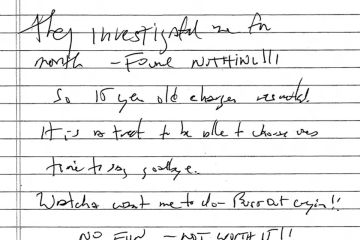 They investigated me for
month - Found NOTHING!!!
So 16 year old charges resulted.
It is a treat to be able to choose ones
time to say goodbye.
Watcha want me to do - Burst out cryin!!
NO FUN - NOT WORTH IT!!